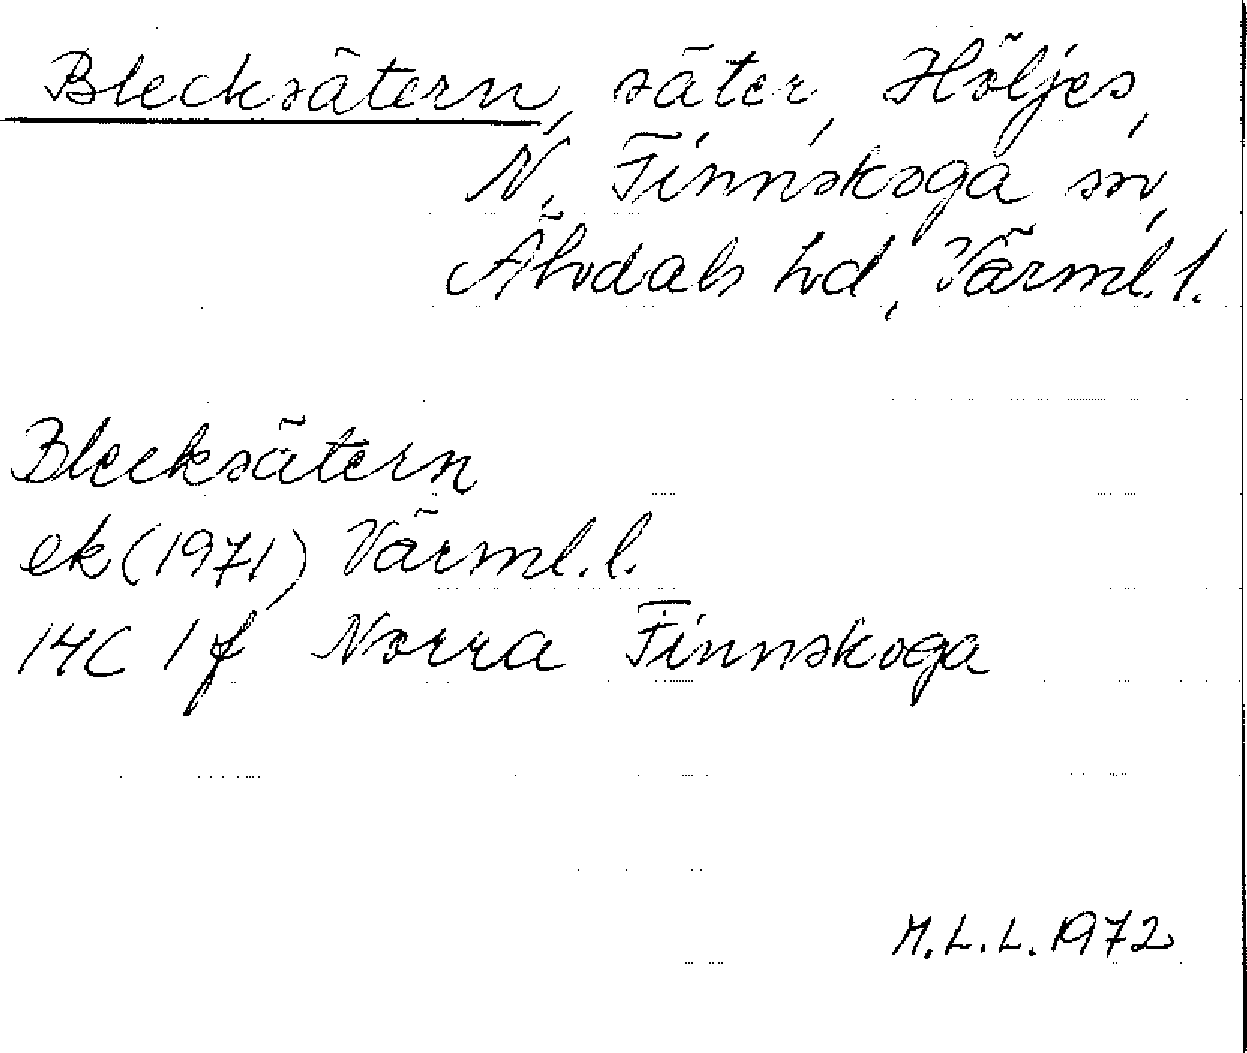 Blecksätern, säter, Höljes,
N. Finnskoga sn,
Älvdals hd, Värml. l.
Blecksätern
ek (1971) Värml. l.
14C 1f Norra Finnskoga
M.L.L. 1972